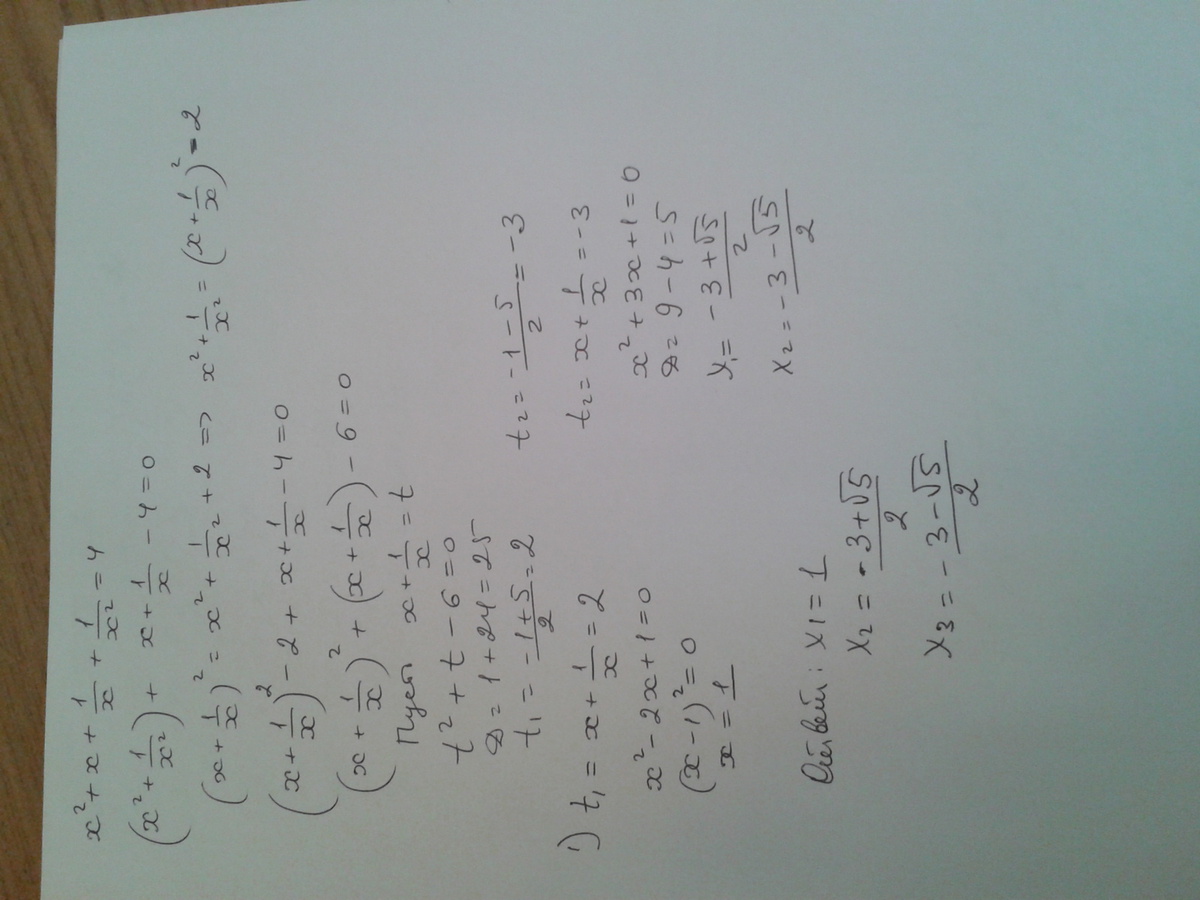 x² + x + 1/x + 1/x² = 4
(x² + 1/x²) + x + 1/x - 4 = 0
(x + 1/x)² = x² + 1/x² + 2 => x² + 1/x² = (x + 1/x)² - 2
(x + 1/x)² - 2 + x + 1/x - 4 = 0
(x + 1/x)² + (x + 1/x) - 6 = 0
Пусть x + 1/x = t
t² + t - 6 = 0
D = 1 + 24 = 25
t₁ = (-1 + 5)/2 = 2
t₂ = (-1 - 5)/2 = -3
1) t₁ = x + 1/x = 2
x² - 2x + 1 = 0
(x - 1)² = 0
x = 1
t₂ = x + 1/x = -3
x² + 3x + 1 = 0
D = 9 - 4 = 5
x₁ = (-3 + √5)/2
x₂ = (-3 - √5)/2
Ответ: x₁ = 1
x₂ = (-3 + √5)/2
x₃ = (-3 - √5)/2